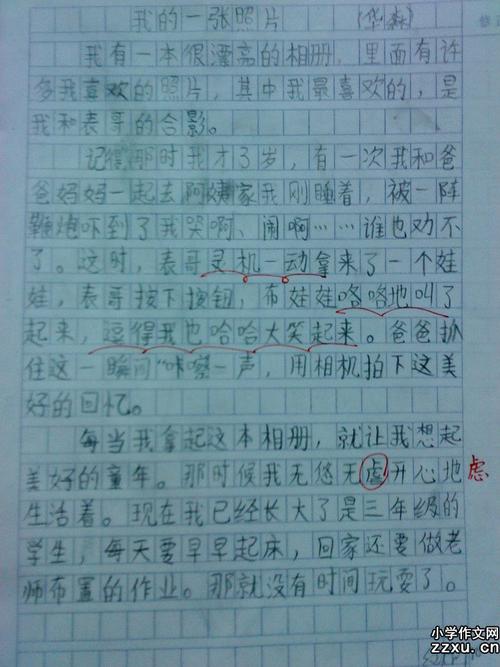 我的一张照片 (华森)
我有一本很漂亮的相册，里面有许
多我喜欢的照片，其中我最喜欢的，是
我和表哥的合影。
记得那时我才3岁，有一次我和爸
爸妈妈一起去阿姨家我刚睡着，被一阵
鞭炮吓到了我哭啊、闹啊……谁也劝不
了。这时，表哥灵机一动拿来了一个娃
娃，表哥按下按钮，布娃娃咯咯地叫了
起来，逗得我也哈哈大笑起来。爸爸抓
住这一瞬间"咔嚓"一声，用相机拍下这美
好的回忆。
每当我拿起这本相册，就让我想起
美好的童年。那时候我无悠无虑开心地 虑
生活着。现在我已经长大了是三年级的
学生，每天要早早起床，回家还要做老
师布置的作业。那就没有时间玩耍了。
小学作文网
zzxu.cn